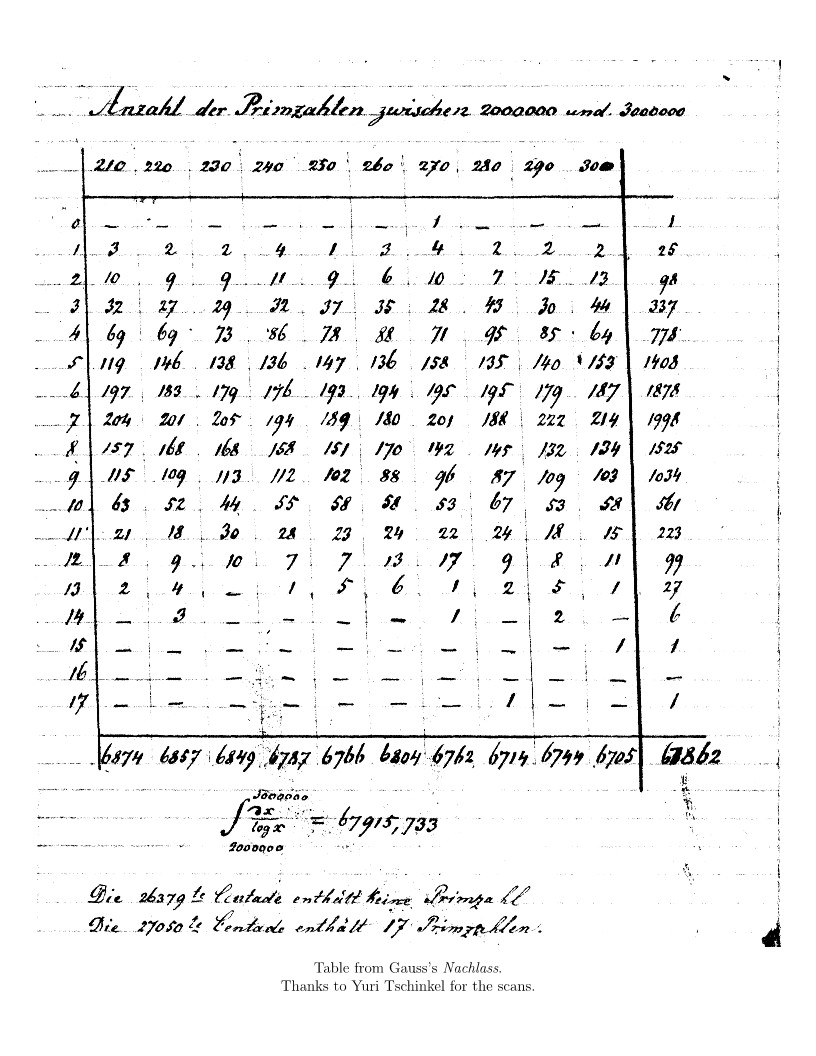 Anzahl der Primzahlen zwischen 2000000 und. 3000000
210 220 230 240 250 260 270 280 290 300
0 — — — — — — 1 — — — 1
1 3 2 2 4 1 3 4 2 2 2 25
2 10 9 9 11 9 6 10 7 15 13 98
3 32 27 29 32 37 35 28 43 30 44 337
4 69 69 73 86 78 88 71 95 85 64 778
5 119 146 138 136 147 136 158 135 140 153 1408
6 197 183 179 176 193 194 195 195 179 187 1878
7 204 201 205 194 189 180 201 188 222 214 1998
8 157 168 168 158 151 170 142 145 132 134 1525
9 115 109 113 112 102 88 96 87 109 103 1034
10 63 52 44 55 58 58 53 67 53 58 561
11 21 18 30 28 23 24 22 24 18 15 223
12 8 9 10 7 7 13 17 9 8 11 99
13 2 4 — 1 5 6 1 2 5 1 27
14 — 3 — — — — 1 — 2 — 6
15 — — — — — — — — — 1 1
16 — — — — — — — — — — —
17 — — — — — — — 1 — — 1
6874 6857 6849 6787 6766 6804 6762 6714 6744 6705 67862
3000000
∫ ∂x / log x = 67915,733
2000000
Die 26379te Centade enthält keine Primzahl
Die 27050te Centade enthält 17 Primzahlen.
Table from Gauss's Nachlass.
Thanks to Yuri Tschinkel for the scans.